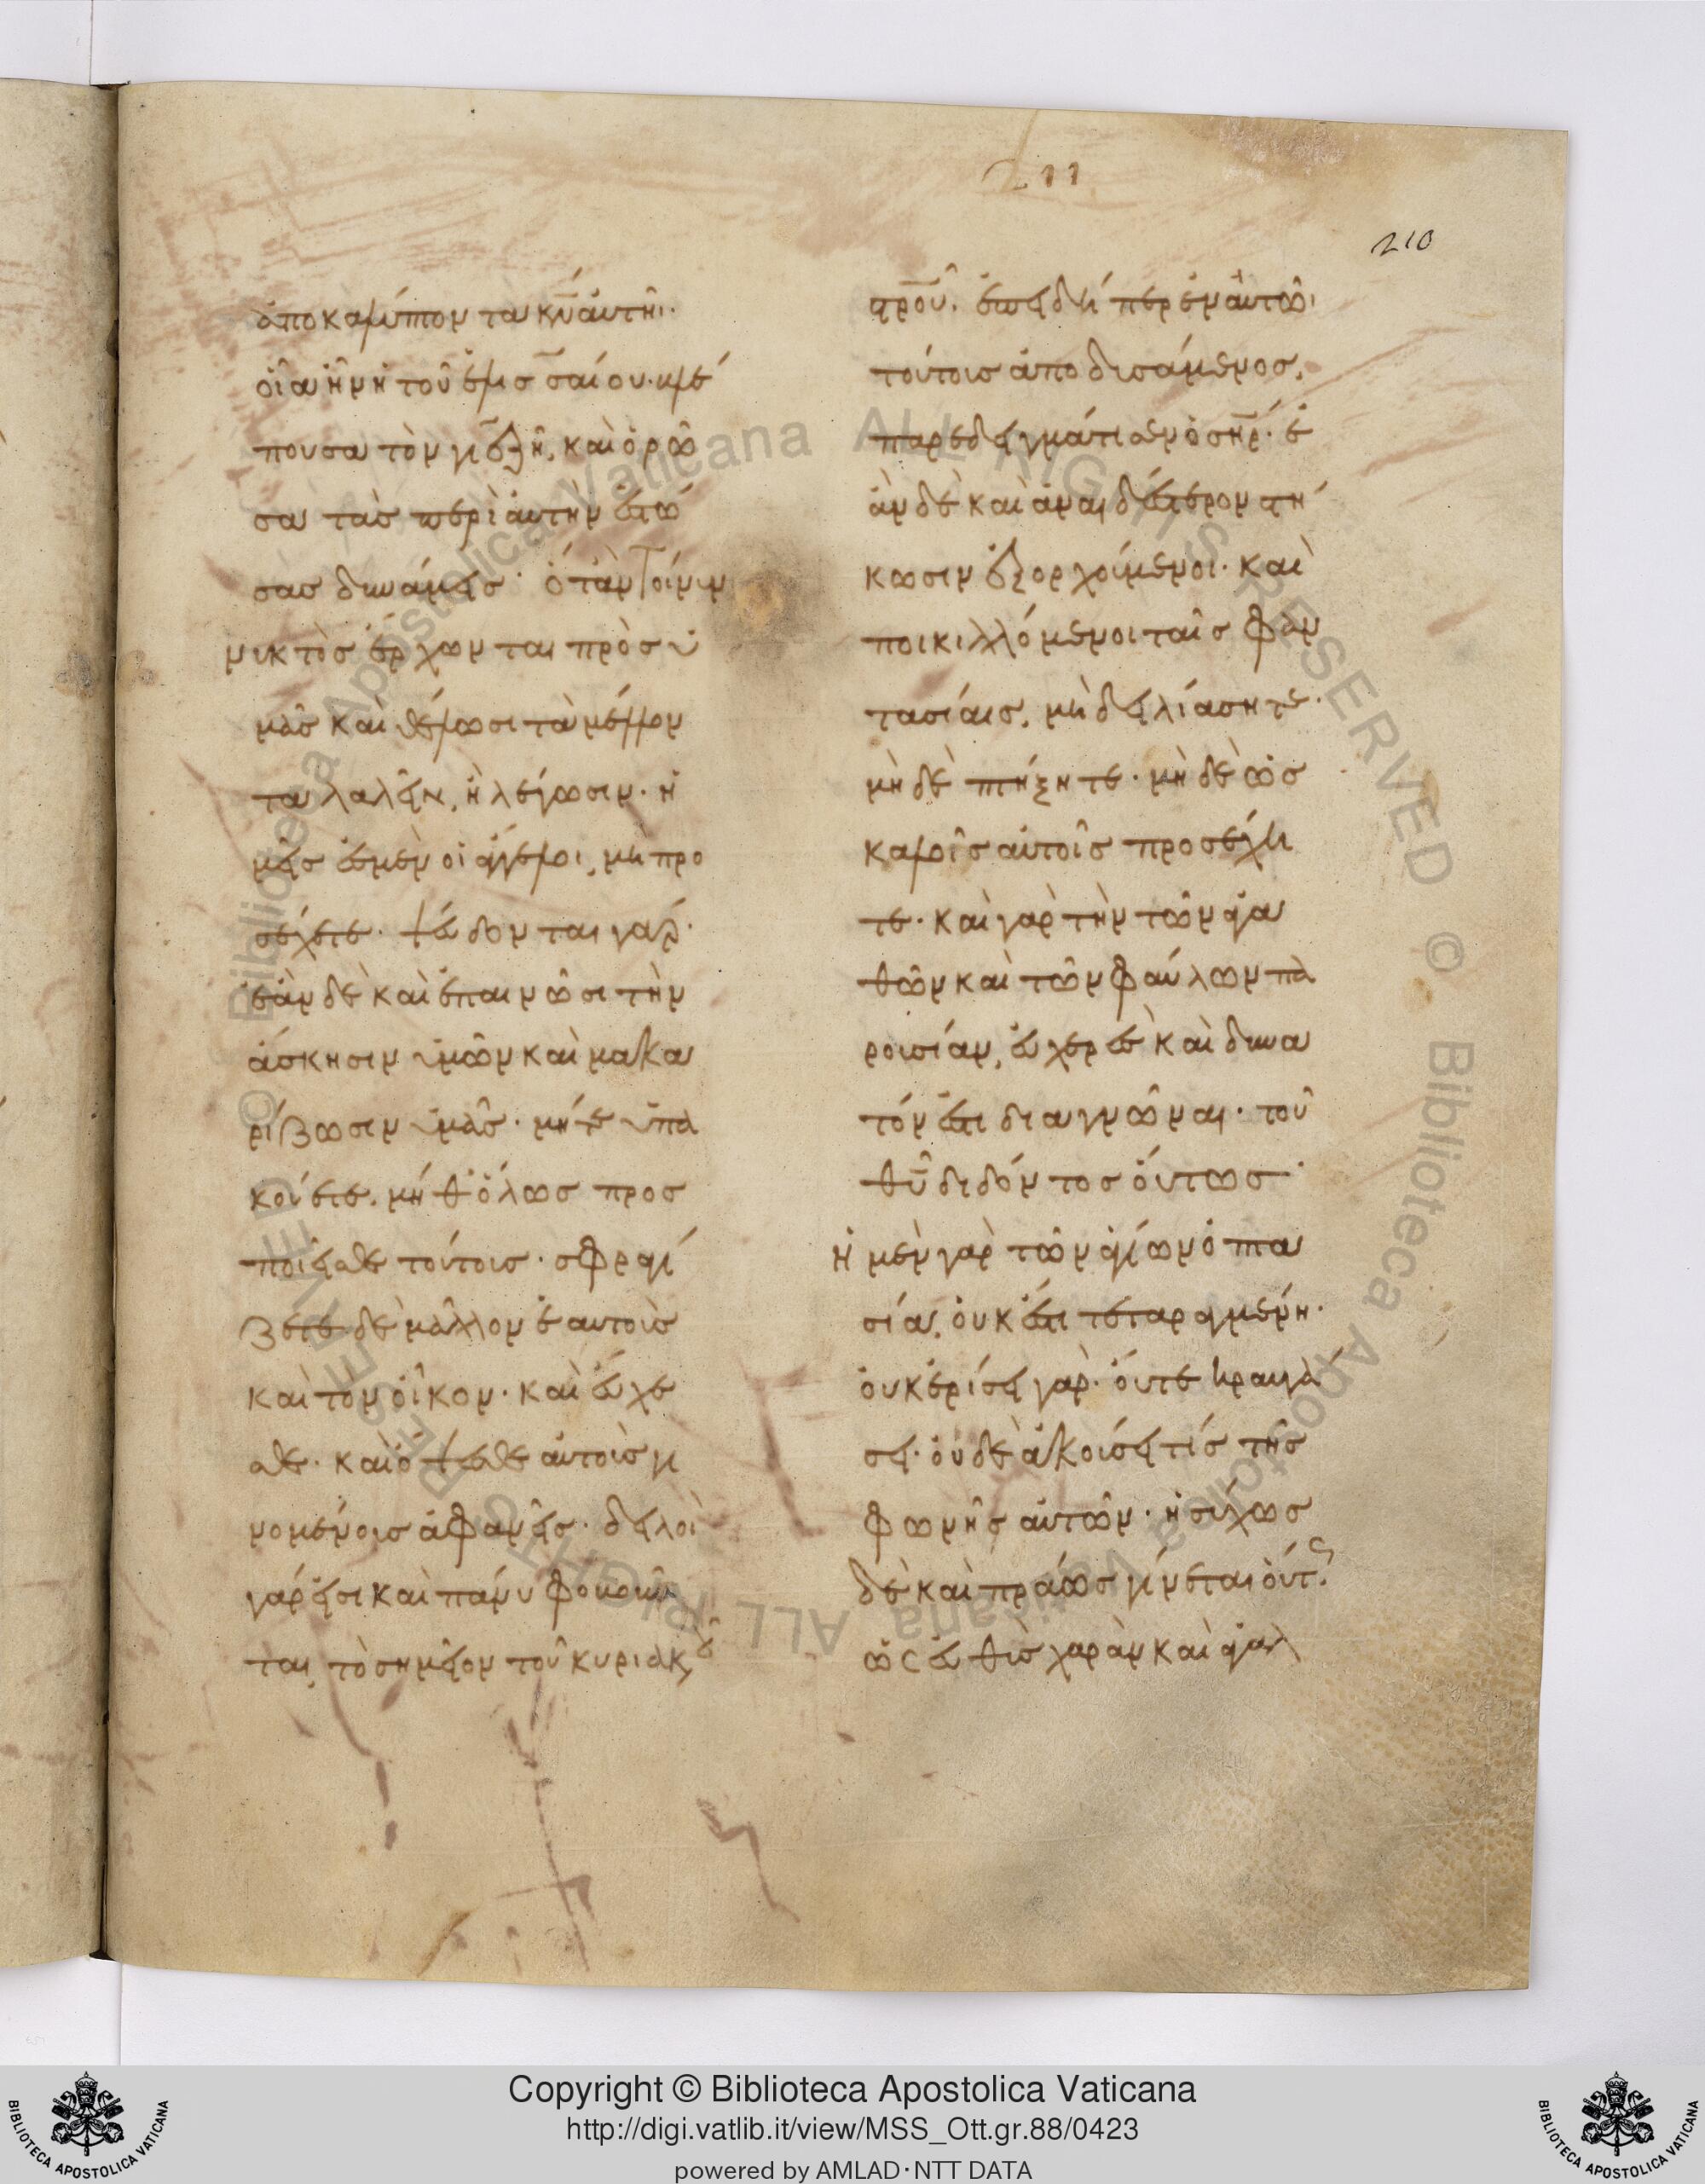 211
210
ἀποκαλύπτον τα κν̅ ἀυτῆι.
οἵα ἦν ἡ τοῦ ἐλισσαίου. βλέ
πουσα τὸν γιεζῆ, καὶ ὁρῶ
σα τὰσ περὶ ἀυτὴν ἑστώ
σασ δυνάμεισ· ὅταν τοίνυν
νυκτὸσ ἔρχωνται πρὸσ ὑ
μᾶσ καὶ θέλωσι τὰ μέλλον
τα λαλεῖν, ἢ λέγωσιν. ἡ
μεῖσ ἐσμὲν οἱ ἄγγελοι, μὴ προ
σέχετε. ψεύδονται γάρ.
ἐὰν δὲ καὶ ἐπαινῶσι τὴν
ἄσκησιν ὑμῶν καὶ μακα
ρίζωσιν ὑμᾶσ. μήτε ὑπα
κούετε. μήθ ὅλωσ προσ
ποιεῖσθε τούτοισ. σφραγί
ζετε δὲ μᾶλλον ἑαυτοὺσ
καὶ τον οἶκον. καὶ ἔυχε
σθε. καὶ ὄψεσθε αὐτοὺσ γι
νομένουσ ἀφανεῖσ. δειλοὶ
γάρ εἰσι καὶ πάνυ φοβοῦν
ται, τὸ σημεῖον τοῦ κυριακοῦ
στρου̅. ἐπειδή περ ἐν ἀυτῶι
τούτουσ ἀποδυσάμενοσ,
παρεδειγμάτισεν ὁ σηρ̅. ἐ
ὰν δὲ καὶ ἀναιδέστερον στή
κωσιν ἐξορχούμενοι. καὶ
ποικιλλόμενοι ταῖσ φαν
τασίαισ, μὴ δειλιάσητε.
μὴ δὲ πτήξητε. μὴ δὲ ὡσ
καλοῖσ αὐτοῖσ προσέχη
τε. καὶ γαρ τὴν τῶν ἀγα
θῶν καὶ τῶν φαύλων πα
ρουσίαν, ἐυχερὲσ καὶ δυνα
τόν ἐστι διαγνῶναι. τοῦ
θυ̅ διδόντοσ ὅυτωσ·
ἡ μὲν γαρ τῶν ἁγίων ὀπτα
σία, ὀυκ ἔστι τεταραγμένη.
ὀυκ ἐρίσει γαρ. ὄυτε κραυγά
σει. ὀυδὲ ἀκούσει τίσ τῆσ
φωνῆσ ἀυτῶν. ἡσύχωσ
δὲ καὶ πράωσ γίνεται ὅυτως
ὡς ἐυθὺσ χαρὰν καὶ ἀγαλ
Copyright © Biblioteca Apostolica Vaticana
http://digi.vatlib.it/view/MSS_Ott.gr.88/0423
powered by AMLAD·NTT DATA
BIBLIOTECA APOSTOLICA VATICANA
BIBLIOTECA APOSTOLICA VATICANA
© Biblioteca Apostolica Vaticana ALL RIGHTS RESERVED © Biblioteca Apostolica Vaticana ALL RIGHTS RESERVED